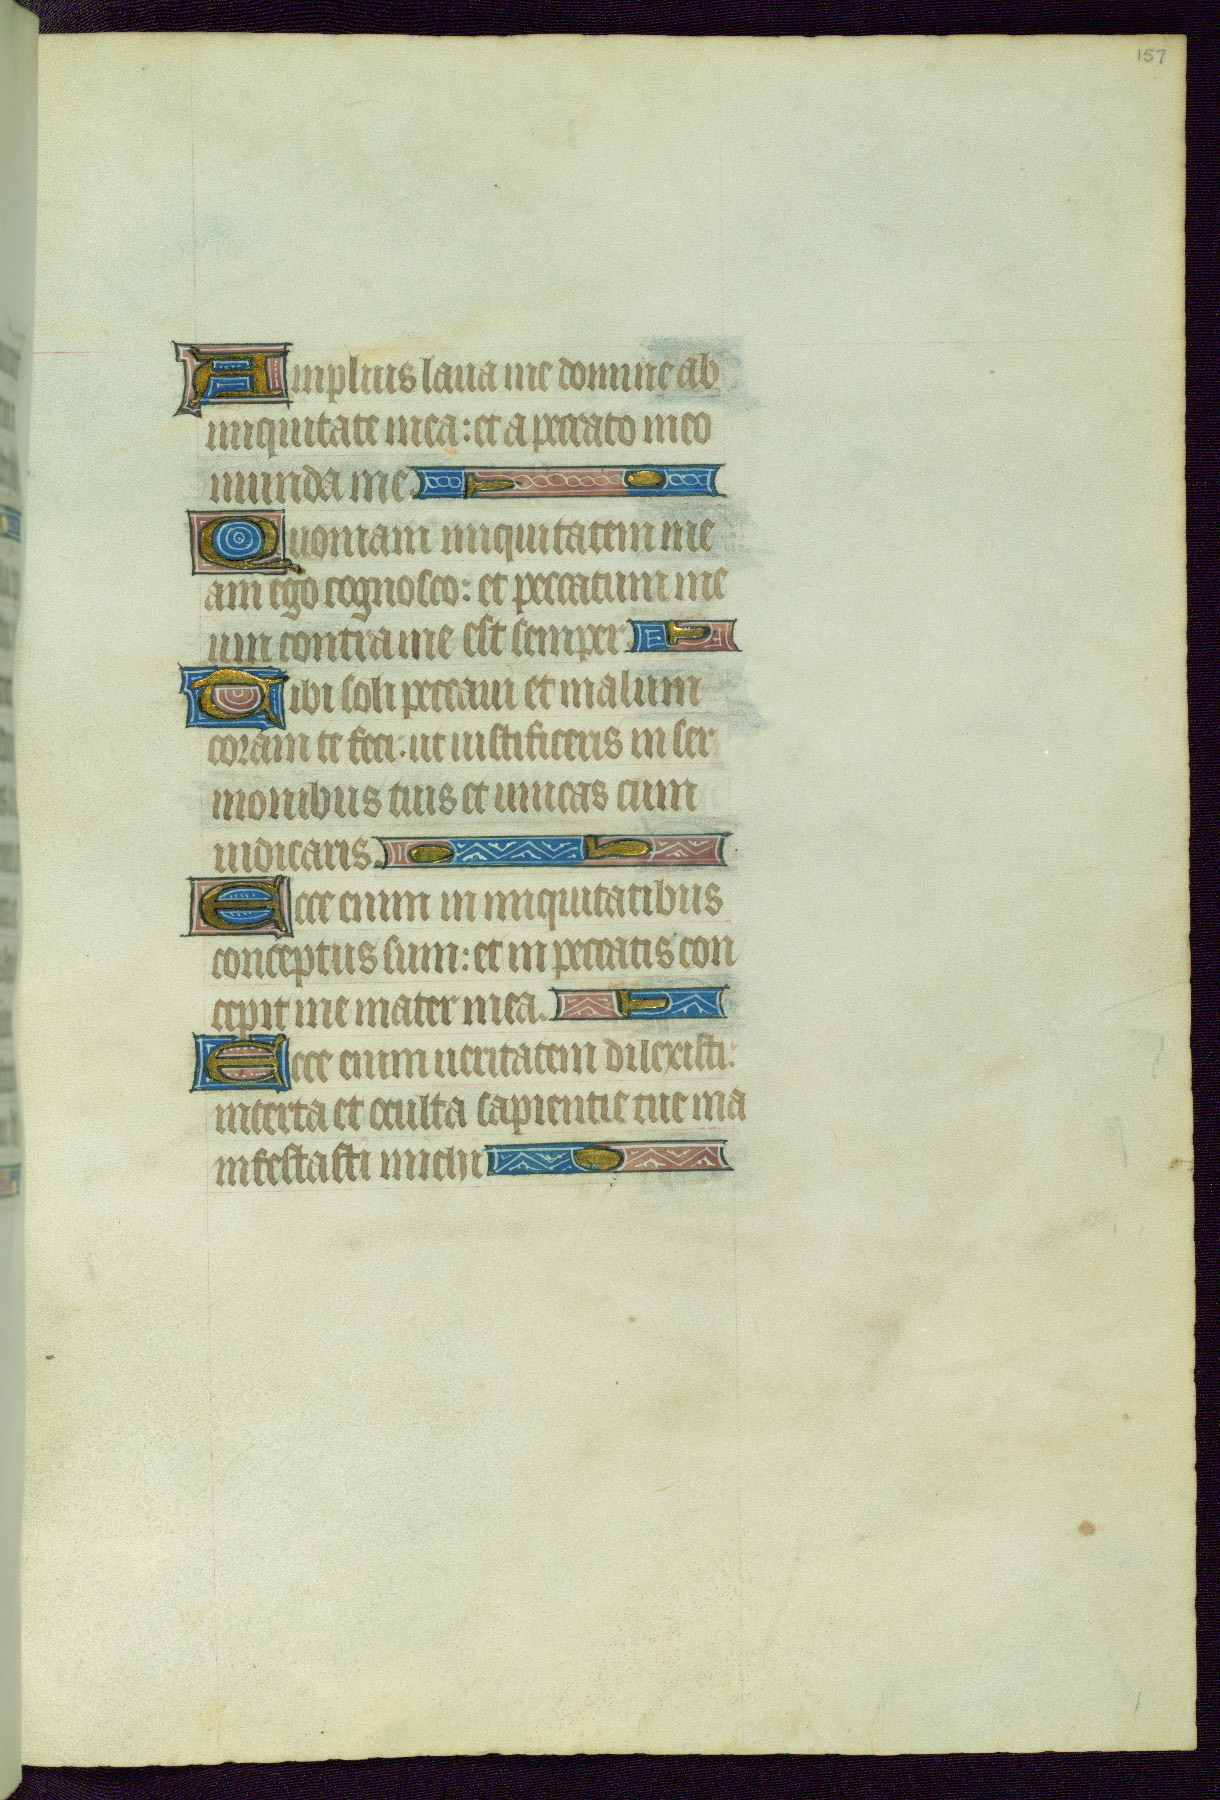 157
Amplius laua me domine ab
iniquitate mea: et a peccato meo
munda me.
Quoniam iniquitatem me
am ego cognosco: et peccatum me
um contra me est semper.
Tibi soli peccaui et malum
coram te feci: ut iustificeris in ser
monibus tuis et uincas cum
iudicaris.
Ecce enim in iniquitatibus
conceptus sum: et in peccatis con
cepit me mater mea.
Ecce enim ueritatem dilexisti:
incerta et oculta sapientie tue ma
nifestasti michi